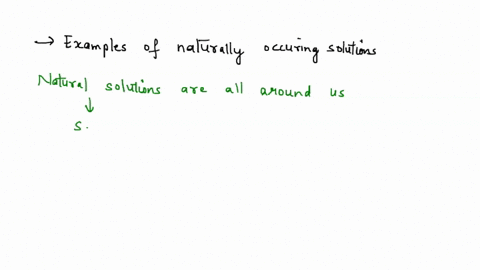 → Examples of naturally occuring solutions
Natural solutions are all around us
↓
S.